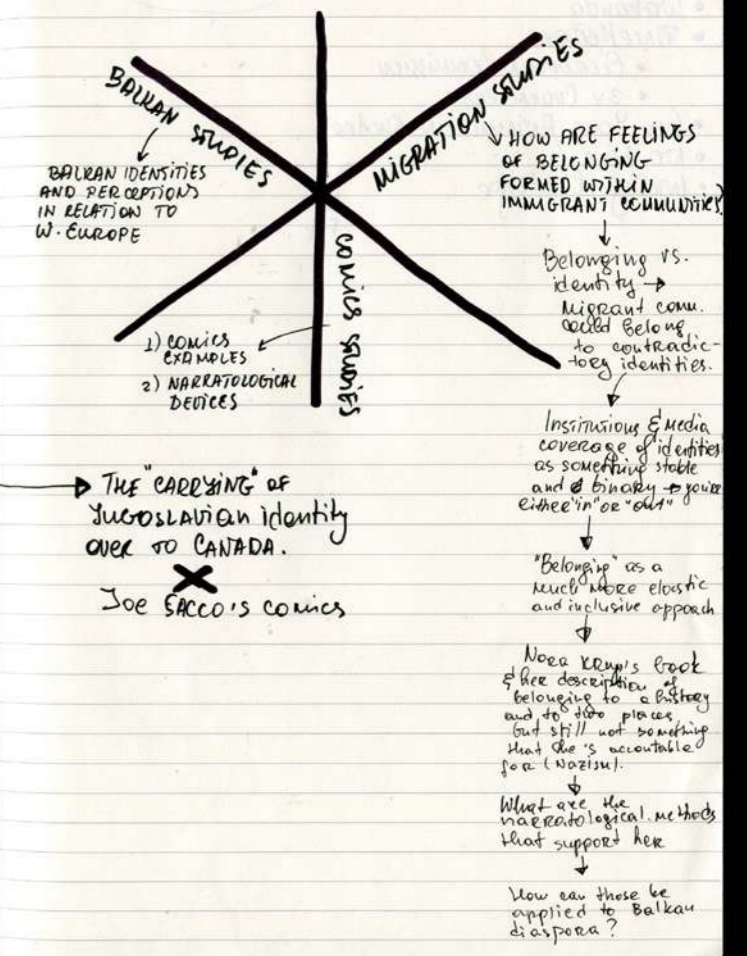 BALKAN STUDIES
BALKAN IDENTITIES
AND PERCEPTIONS
IN RELATION TO
W. EUROPE
MIGRATION STUDIES
HOW ARE FEELINGS
OF BELONGING
FORMED WITHIN
IMMIGRANT COMMUNITIES?
COMICS STUDIES
1) COMICS
EXAMPLES
2) NARRATOLOGICAL
DEVICES
Belonging vs.
identity →
Migrant comm.
could belong
to contradic-
tory identities.
Institutions & Media
coverage of identities
as something stable
and binary → you're
either "in" or "out"
"Belonging" as a
much more elastic
and inclusive approach
Nora Krug's book
& her description of
belonging to a history
and to two places,
but still not something
that she's accountable
for (Nazism).
What are the
narratological methods
that support her
How can those be
applied to Balkan
diaspora?
THE "CARRYING" OF
YUGOSLAVIAN identity
OVER TO CANADA.
X
JOE SACCO'S comics